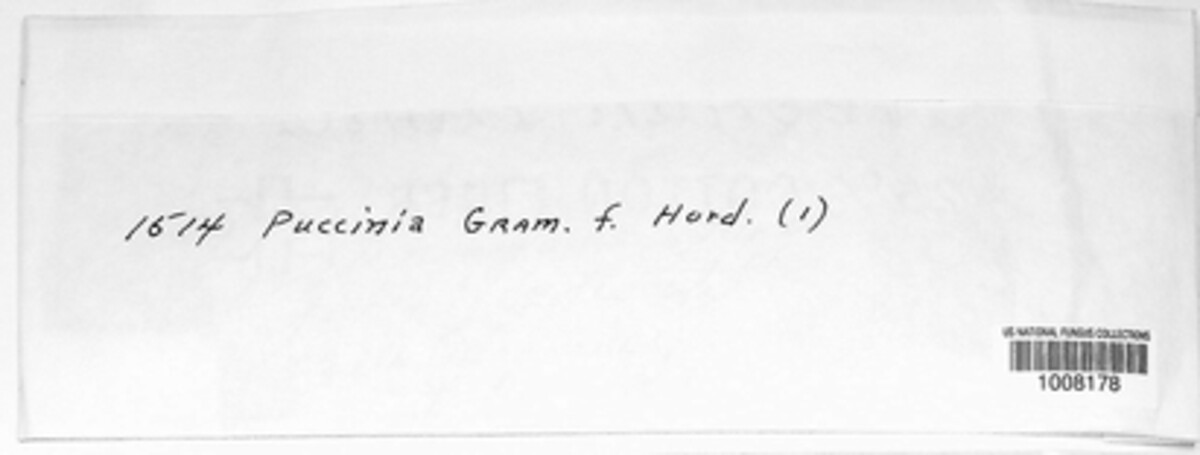 1514 Puccinia Gram. f. Hord. (1)
US NATIONAL FUNGUS COLLECTIONS
1008178